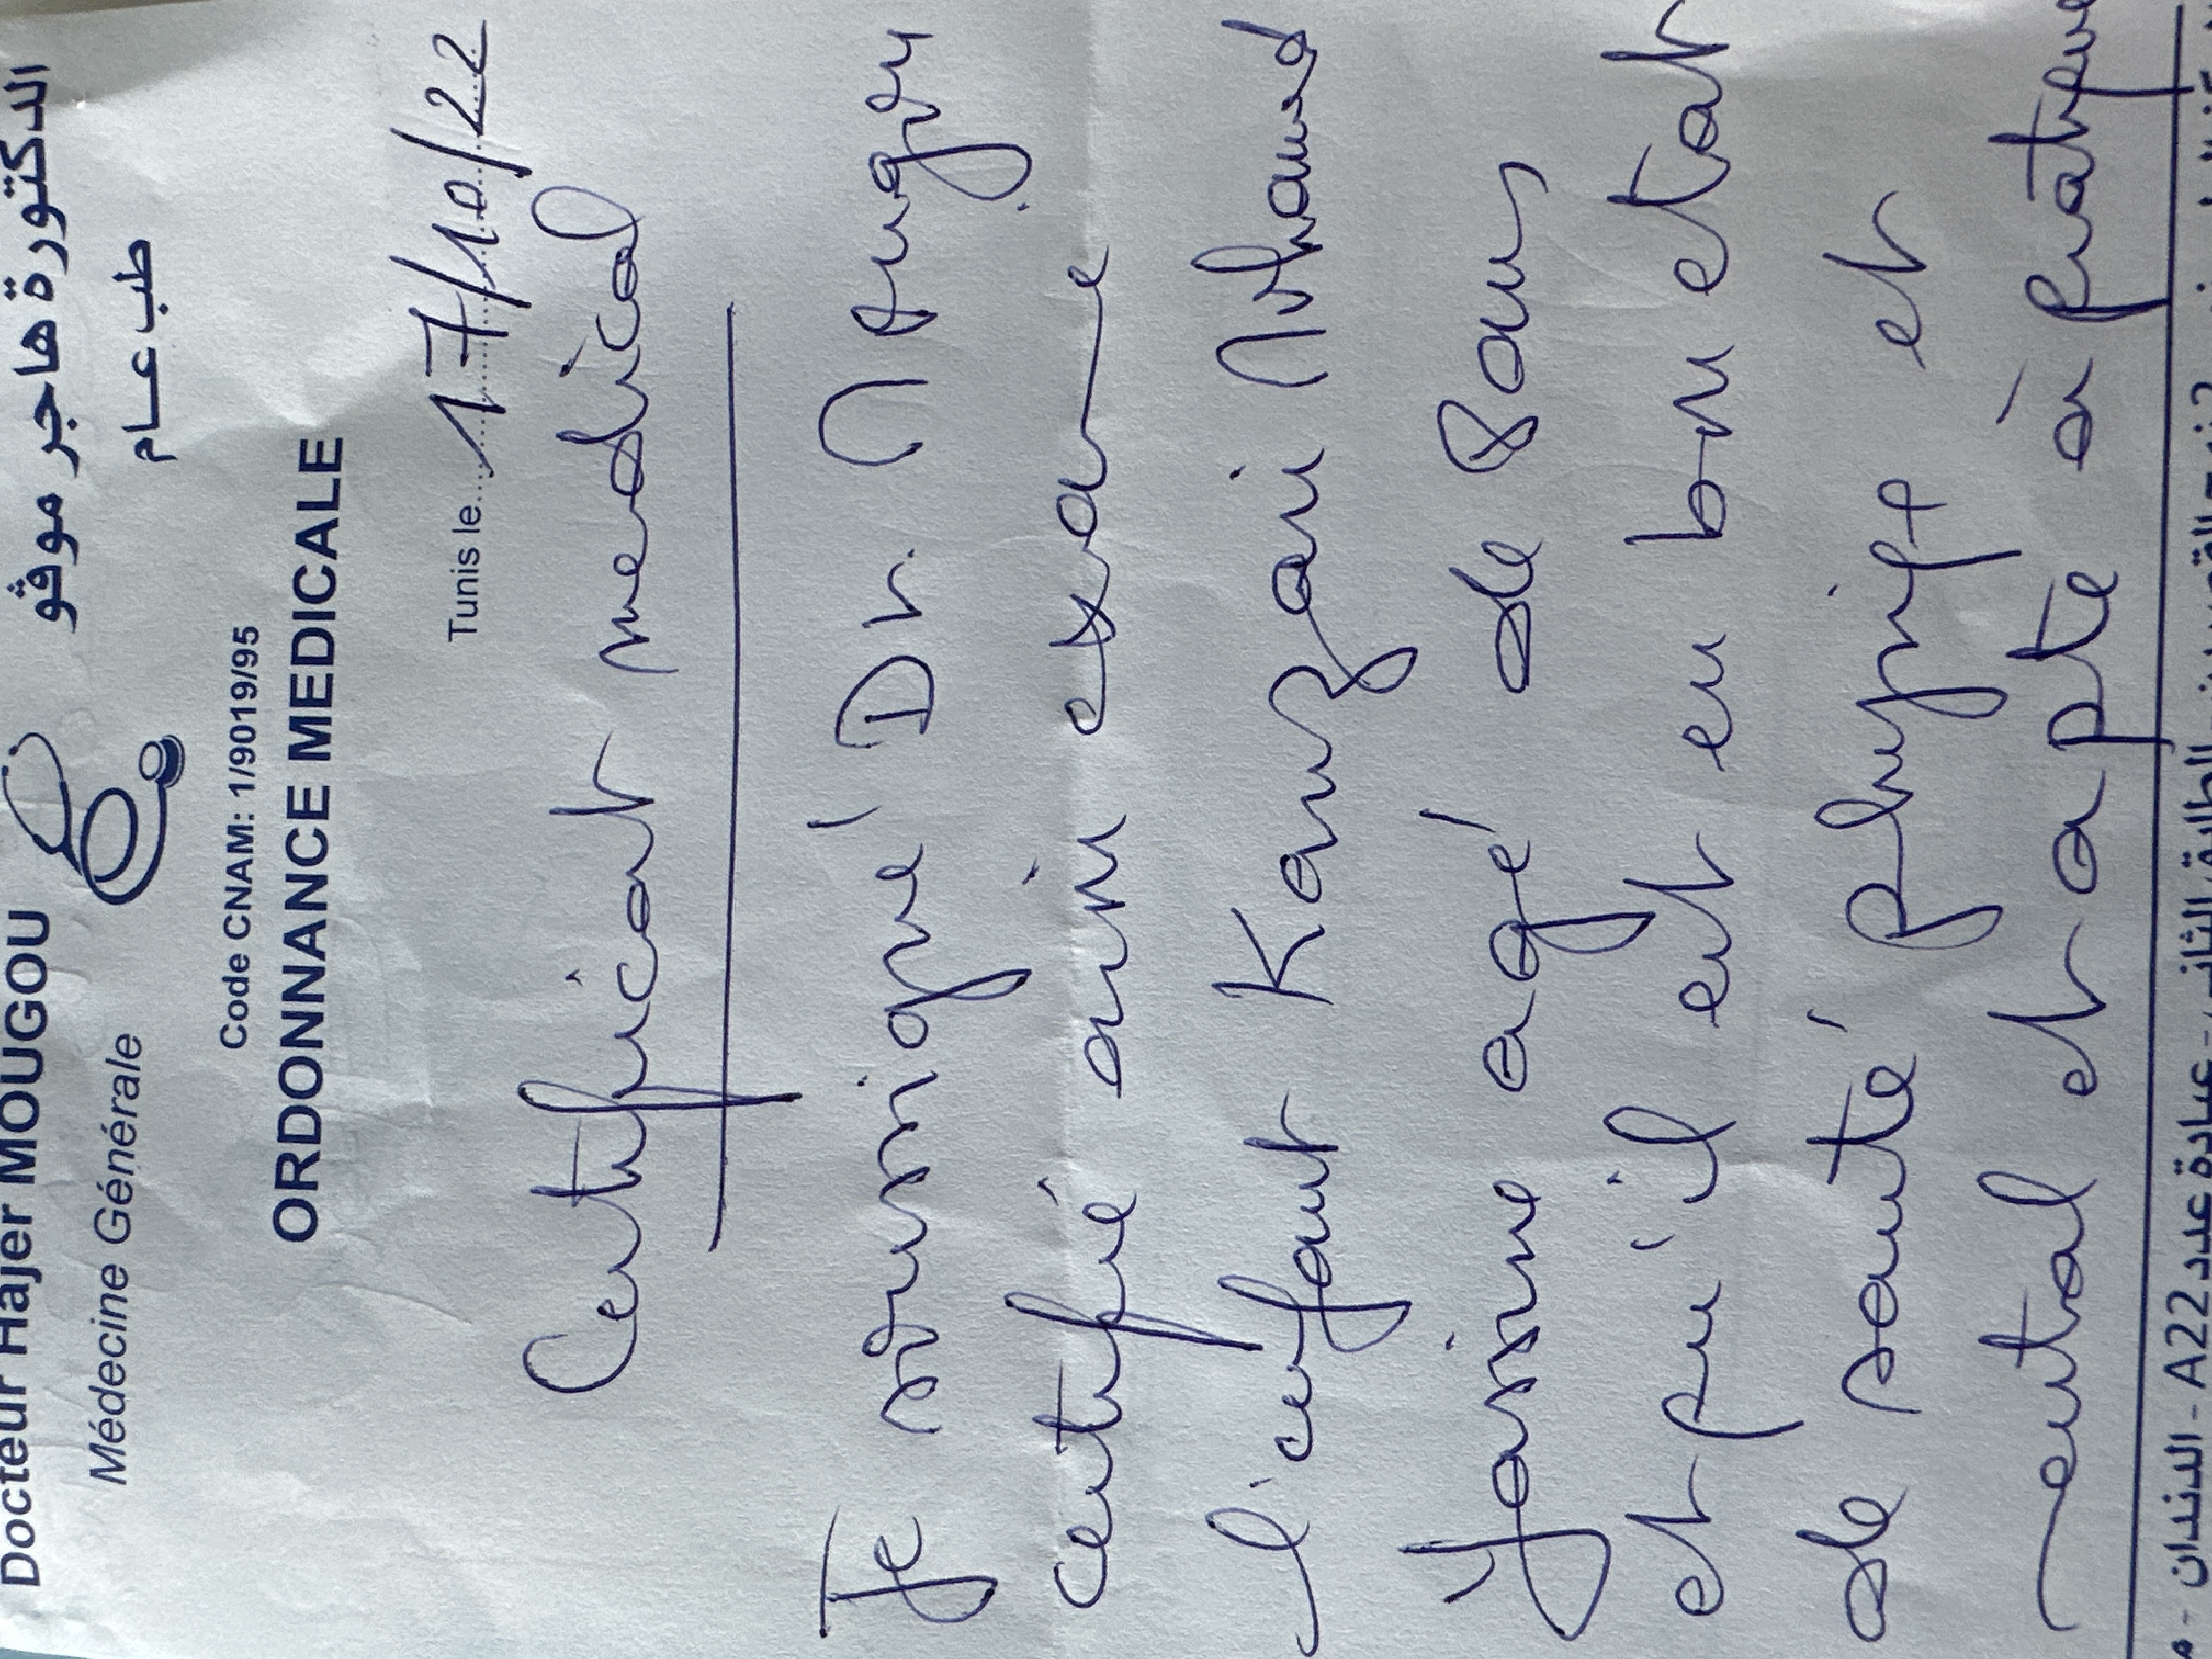 Docteur Hajer MOUGOU
الدكتورة هاجر موڤو
Médecine Générale
طب عام
Code CNAM: 1/9019/95
ORDONNANCE MEDICALE
Tunis le 17/10/22
Certificat medical
Je soussigné Dr Mougou
certifie avoir examiné
l'enfant Kanzari Mohamed
Yassine agé de 8 ans
et qu'il est en bon etat
de santé physique et
mental et apte à pratiquer
عيادة عدد A22 - الدندان -